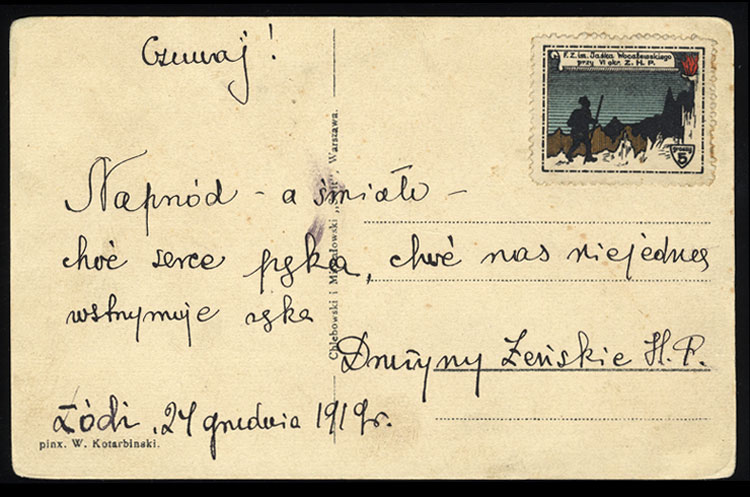 Czuwaj!
F. Z. im. Jaśka Wocalewskiego
przy VI okr. Z. H. P.
groszy
5
Naprzód – a śmiało –
choć serce pęka, choć nas niejedna
wstrzymuje ręka
Drużyny Żeńskie H. P.
Łódź, 24 grudnia 1919r.
pinx. W. Kotarbinski.
Chlebowski i Michałowski Warszawa.